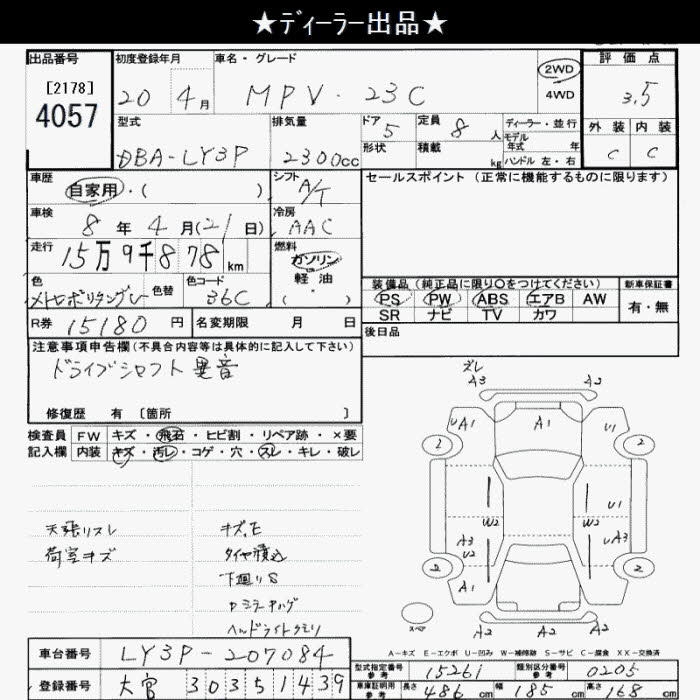 ★ディーラー出品★
出品番号 初度登録年月 車名・グレード 2WD 4WD 評価点
[2178]
4057
20年 4月 MPV・23C 3.5
型式 排気量 ドア 5 定員 8人 ディーラー・並行 外装 内装
DBA-LY3P 2300cc 形状 積載 kg モデル年式 年 C C
ハンドル 左・右
車歴 シフト セールスポイント (正常に機能するものに限ります)
自家用・( ) A/T
車検 8年 4月(21日) 冷房 AAC
走行 15万9千878km 燃料 ガソリン
軽油
( ・ )
色 色替 色コード
メトロポリタングレー 36C
装備品 (純正品に限り○をつけてください) 新車保証書
PS PW ABS エアB AW 有・無
SR ナビ TV カワ
R券 15180円 名変期限 月 日 後日品
注意事項申告欄(不具合内容等は具体的に記入して下さい)
ドライブシャフト異音
修復歴 有 〔箇所 〕
検査員 FW キズ・飛石・ヒビ割・リペア跡・×要
記入欄 内装 キズ・汚レ・コゲ・穴・スレ・キレ・破レ
天張リスレ キズ,E
荷室キズ タイヤ積込
下廻りS
ヘッドライトクモリ
ズレ
A3 A2
UA1 A1 U1
2 2
W2 W2 U1
A3 U2 UA3
2 2
A1
A3 A2
スペア
A-キズ E-エクボ U-凹み W-補修跡 S-サビ C-腐食 XX-交換済
車台番号 LY3P-207084
型式指定番号 参考 15261 類別区分番号 参考 0205
登録番号 大宮 303 51439
車庫証明用 参考 長さ 486cm 幅 185cm 高さ 168cm